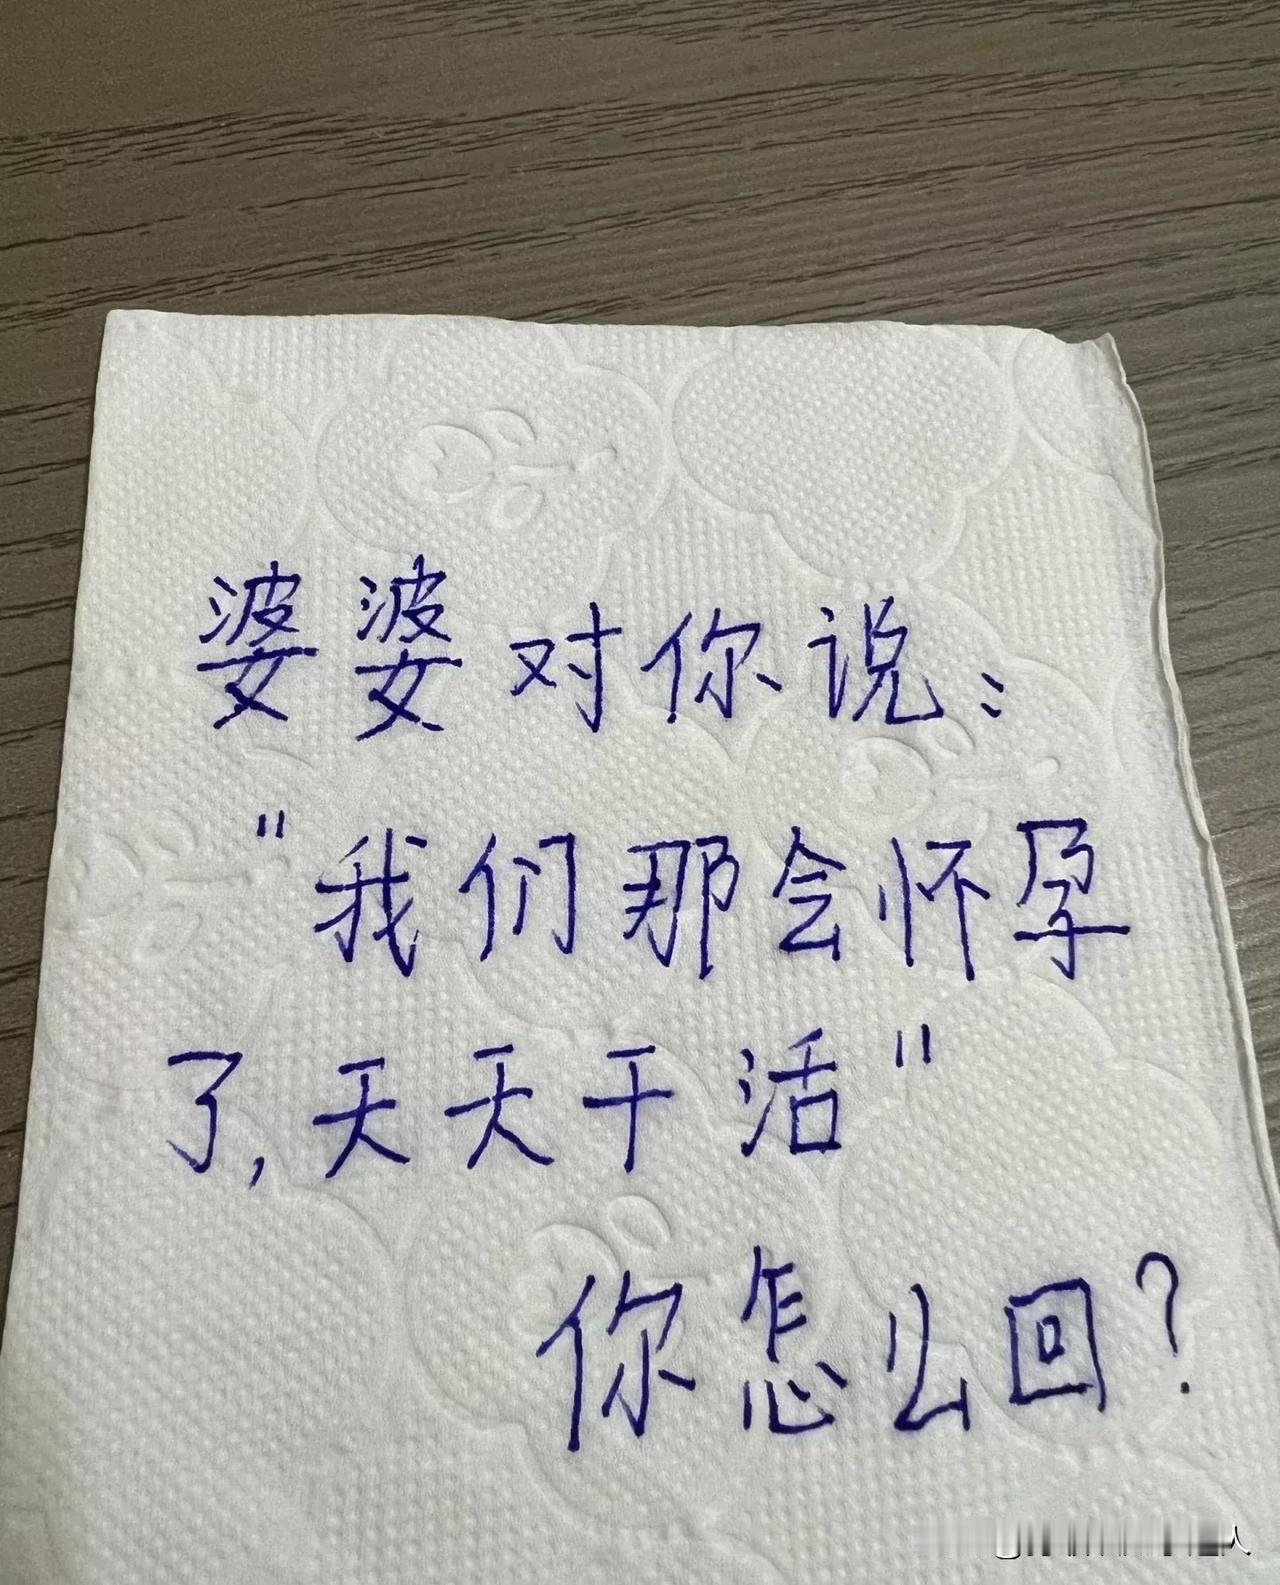 婆婆对你说：
"我们那会怀孕
了，天天干活"
你怎么回？